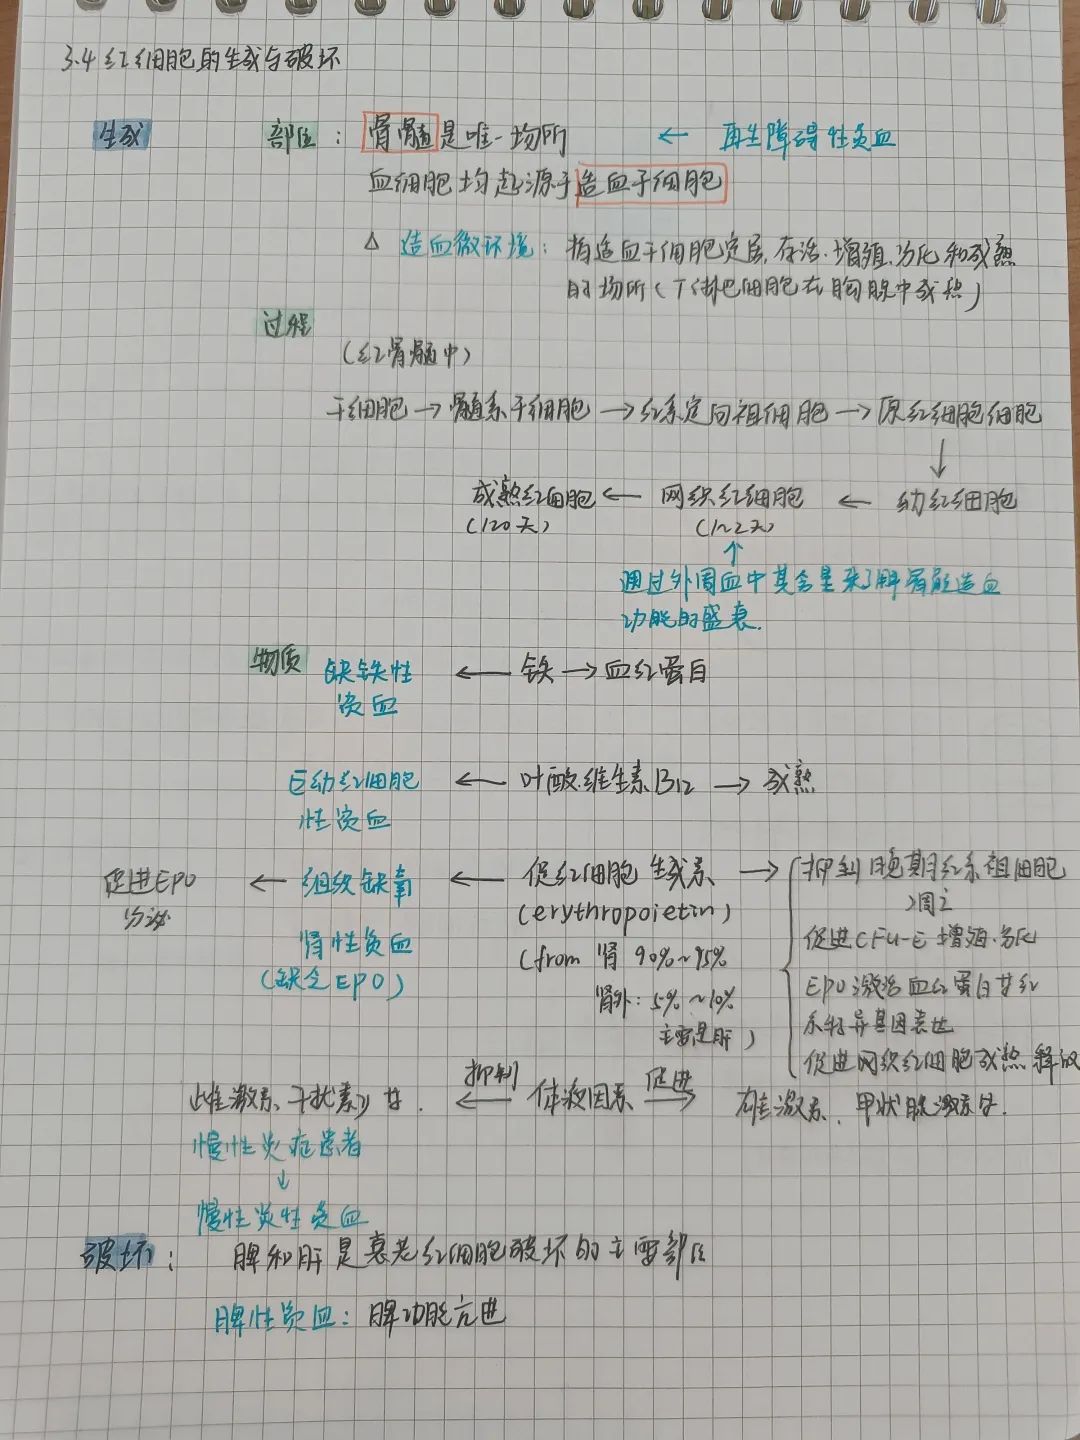 3.4 红细胞的生成与破坏
生成 部位：骨髓是唯一场所 ← 再生障碍性贫血
血细胞均起源于造血干细胞
△ 造血微环境：指造血干细胞定居、存活、增殖、分化和成熟
的场所（T淋巴细胞在胸腺中成熟）
过程
（红骨髓中）
干细胞 → 髓系干细胞 → 红系定向祖细胞 → 原红细胞细胞
↓
成熟红细胞 ← 网织红细胞 ← 幼红细胞
（120天） （1~2天）
↑
通过外周血中其含量来了解骨髓造血
功能的盛衰.
物质 缺铁性 ← 铁 → 血红蛋白
贫血
巨幼红细胞 ← 叶酸.维生素B12 → 成熟
性贫血
促进EPO ← 组织缺氧 ← 促红细胞生成素 → 抑制晚期红系祖细胞
分泌 (erythropoietin) 凋亡
肾性贫血 (from 肾 90%~95% 促进CFU-E增殖.分化
(缺乏EPO) 肾外：5%~10% EPO激活血红蛋白等红
主要是肝) 系特异基因表达
促进网织红细胞成熟释放
雌激素、干扰素γ等. ← 抑制 体液因素 促进 → 雄激素、甲状腺激素等.
慢性炎症患者
↓
慢性炎性贫血
破坏： 脾和肝是衰老红细胞破坏的主要部位
脾性贫血：脾功能亢进